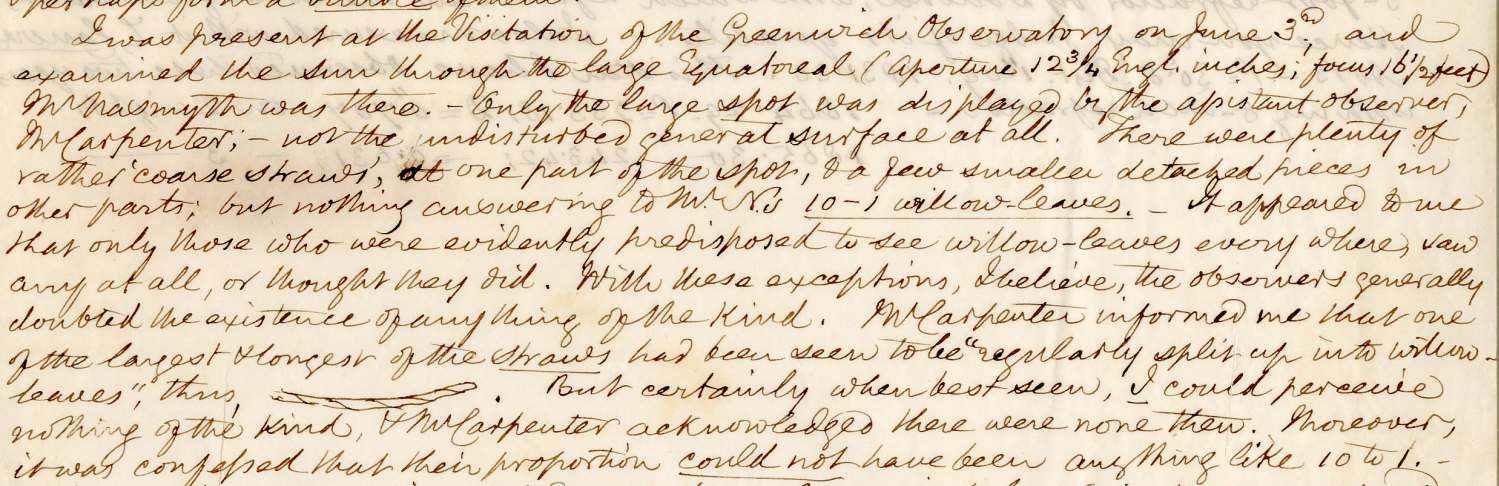 perhaps form a bundle of them.
I was present at the Visitation of the Greenwich Observatory on June 3rd, and
examined the sun through the large Equatoreal (Aperture 12 3/4 Engl. inches; focus 16 1/2 feet)
Mr Nasmyth was there. – Only the large spot was displayed by the assistant observer,
Mr Carpenter; – not the undisturbed general surface at all. There were plenty of
rather 'coarse straws', at one part of the spot, & a few smaller detached pieces in
other parts; but nothing answering to Mr. N.'s 10–1 willow-leaves. – It appeared to me
that only those who were evidently predisposed to see willow-leaves every where, saw
any at all, or thought they did. With these exceptions, I believe, the observers generally
doubted the existence of any thing of the kind. Mr Carpenter informed me that one
of the largest & longest of the straws had been seen to be "regularly split up into willow-
leaves", thus, . But certainly when best seen, I could perceive
nothing of the kind, & Mr Carpenter acknowledged there were none then. Moreover,
it was confessed that their proportion could not have been any thing like 10 to 1. –